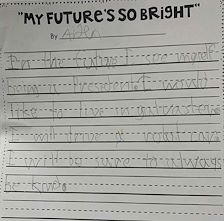 "MY FUTURE'S SO BRIGHT"
By Aden
In the future I see myself
being a President. I would
like to live in
I will drive a
I will be sure to always
be kind.